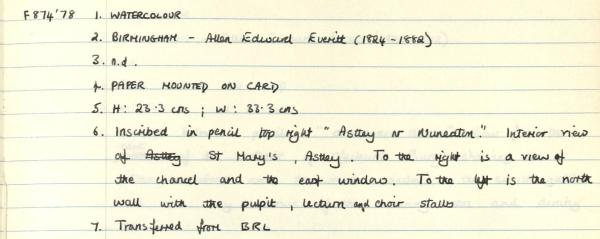 F874'78 1. WATERCOLOUR
2. BIRMINGHAM - Allen Edward Everitt (1824-1882)
3. n.d.
4. PAPER MOUNTED ON CARD
5. H: 23.3 cms ; W: 33.3 cms
6. Inscribed in pencil top right "Astley nr Nuneaton." Interior view
of Astley St Mary's, Astley. To the right is a view of
the chancel and the east window. To the left is the north
wall with the pulpit, lecturn and choir stalls
7. Transferred from BRL